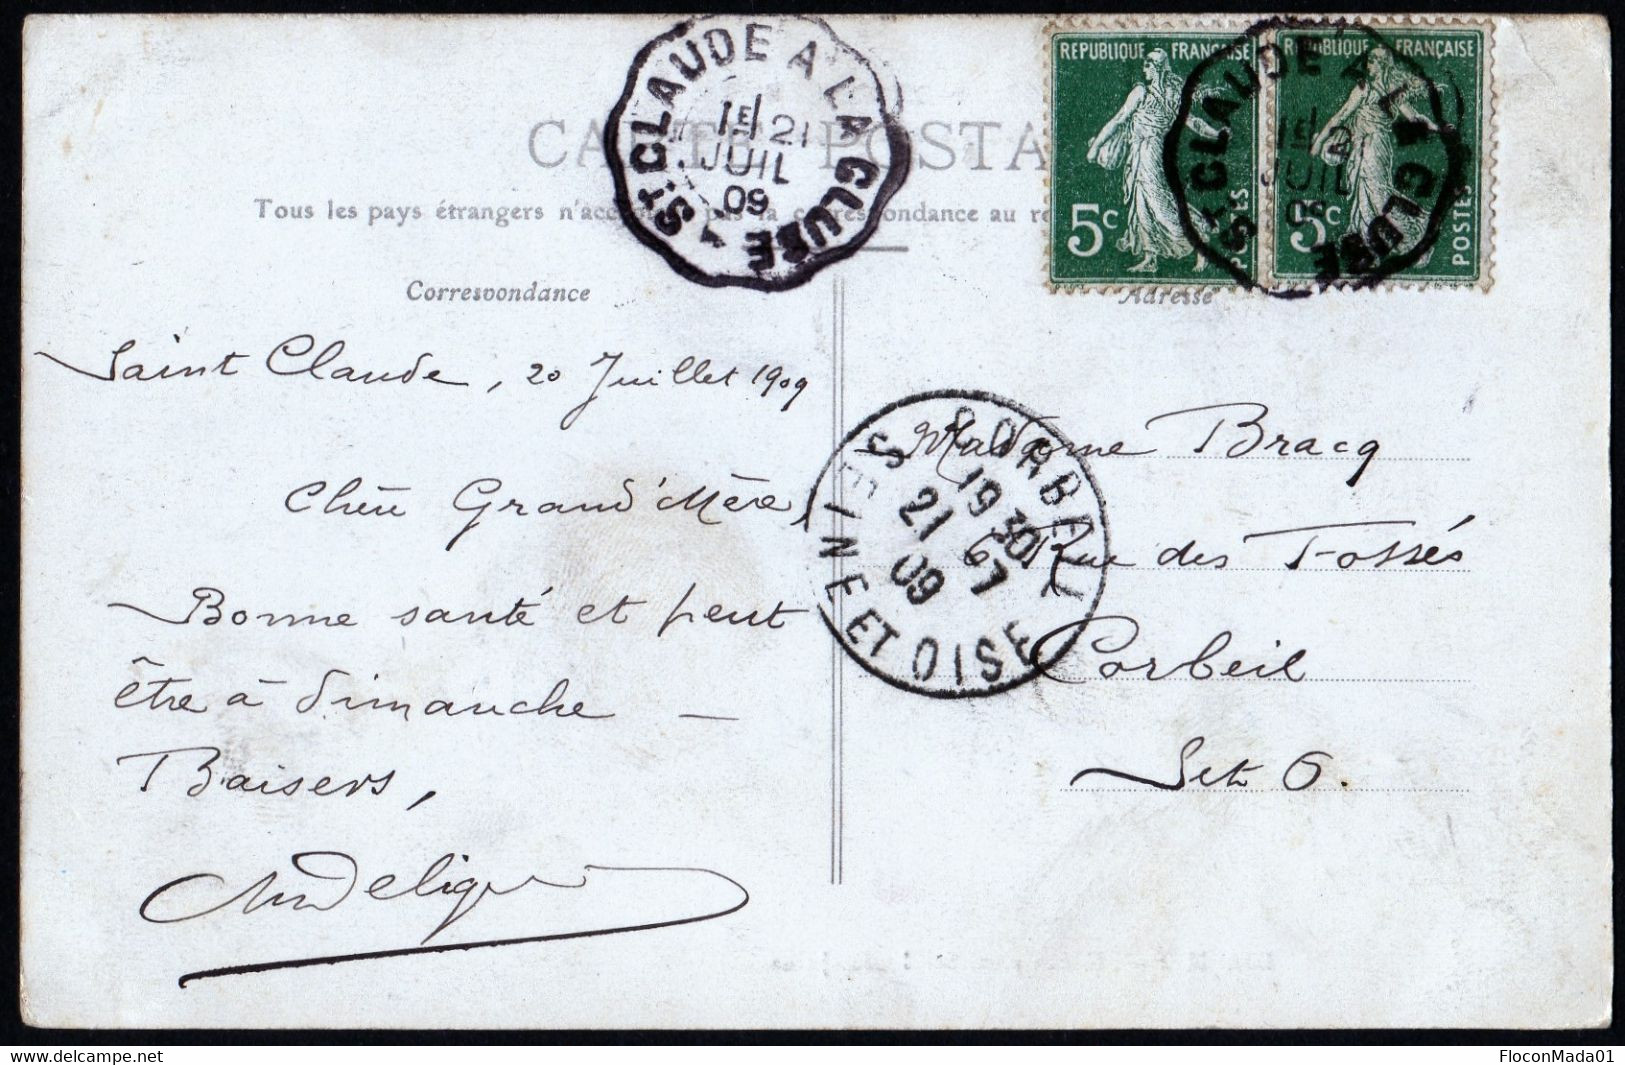 CARTE POSTA
Tous les pays étrangers n'acceptent pas la correspondance au
ST CLAUDE A LA CLUSE
1E 21
JUIL
09
REPUBLIQUE FRANÇAISE
5c
POSTES
REPUBLIQUE FRANÇAISE
5c
POSTES
ST CLAUDE A LA CLUSE
1E 21
JUIL
09
Correspondance
Adresse
Saint Claude, 20 Juillet 1909
Chère Grand'Mère,
Bonne santé et peut
être à dimanche —
Baisers,
CORBEIL
19 30
21 7
09
SEINE ET OISE
Madame Bracq
Rue des Fossés
Corbeil
S et O.
FloconMada01
delcampe.net